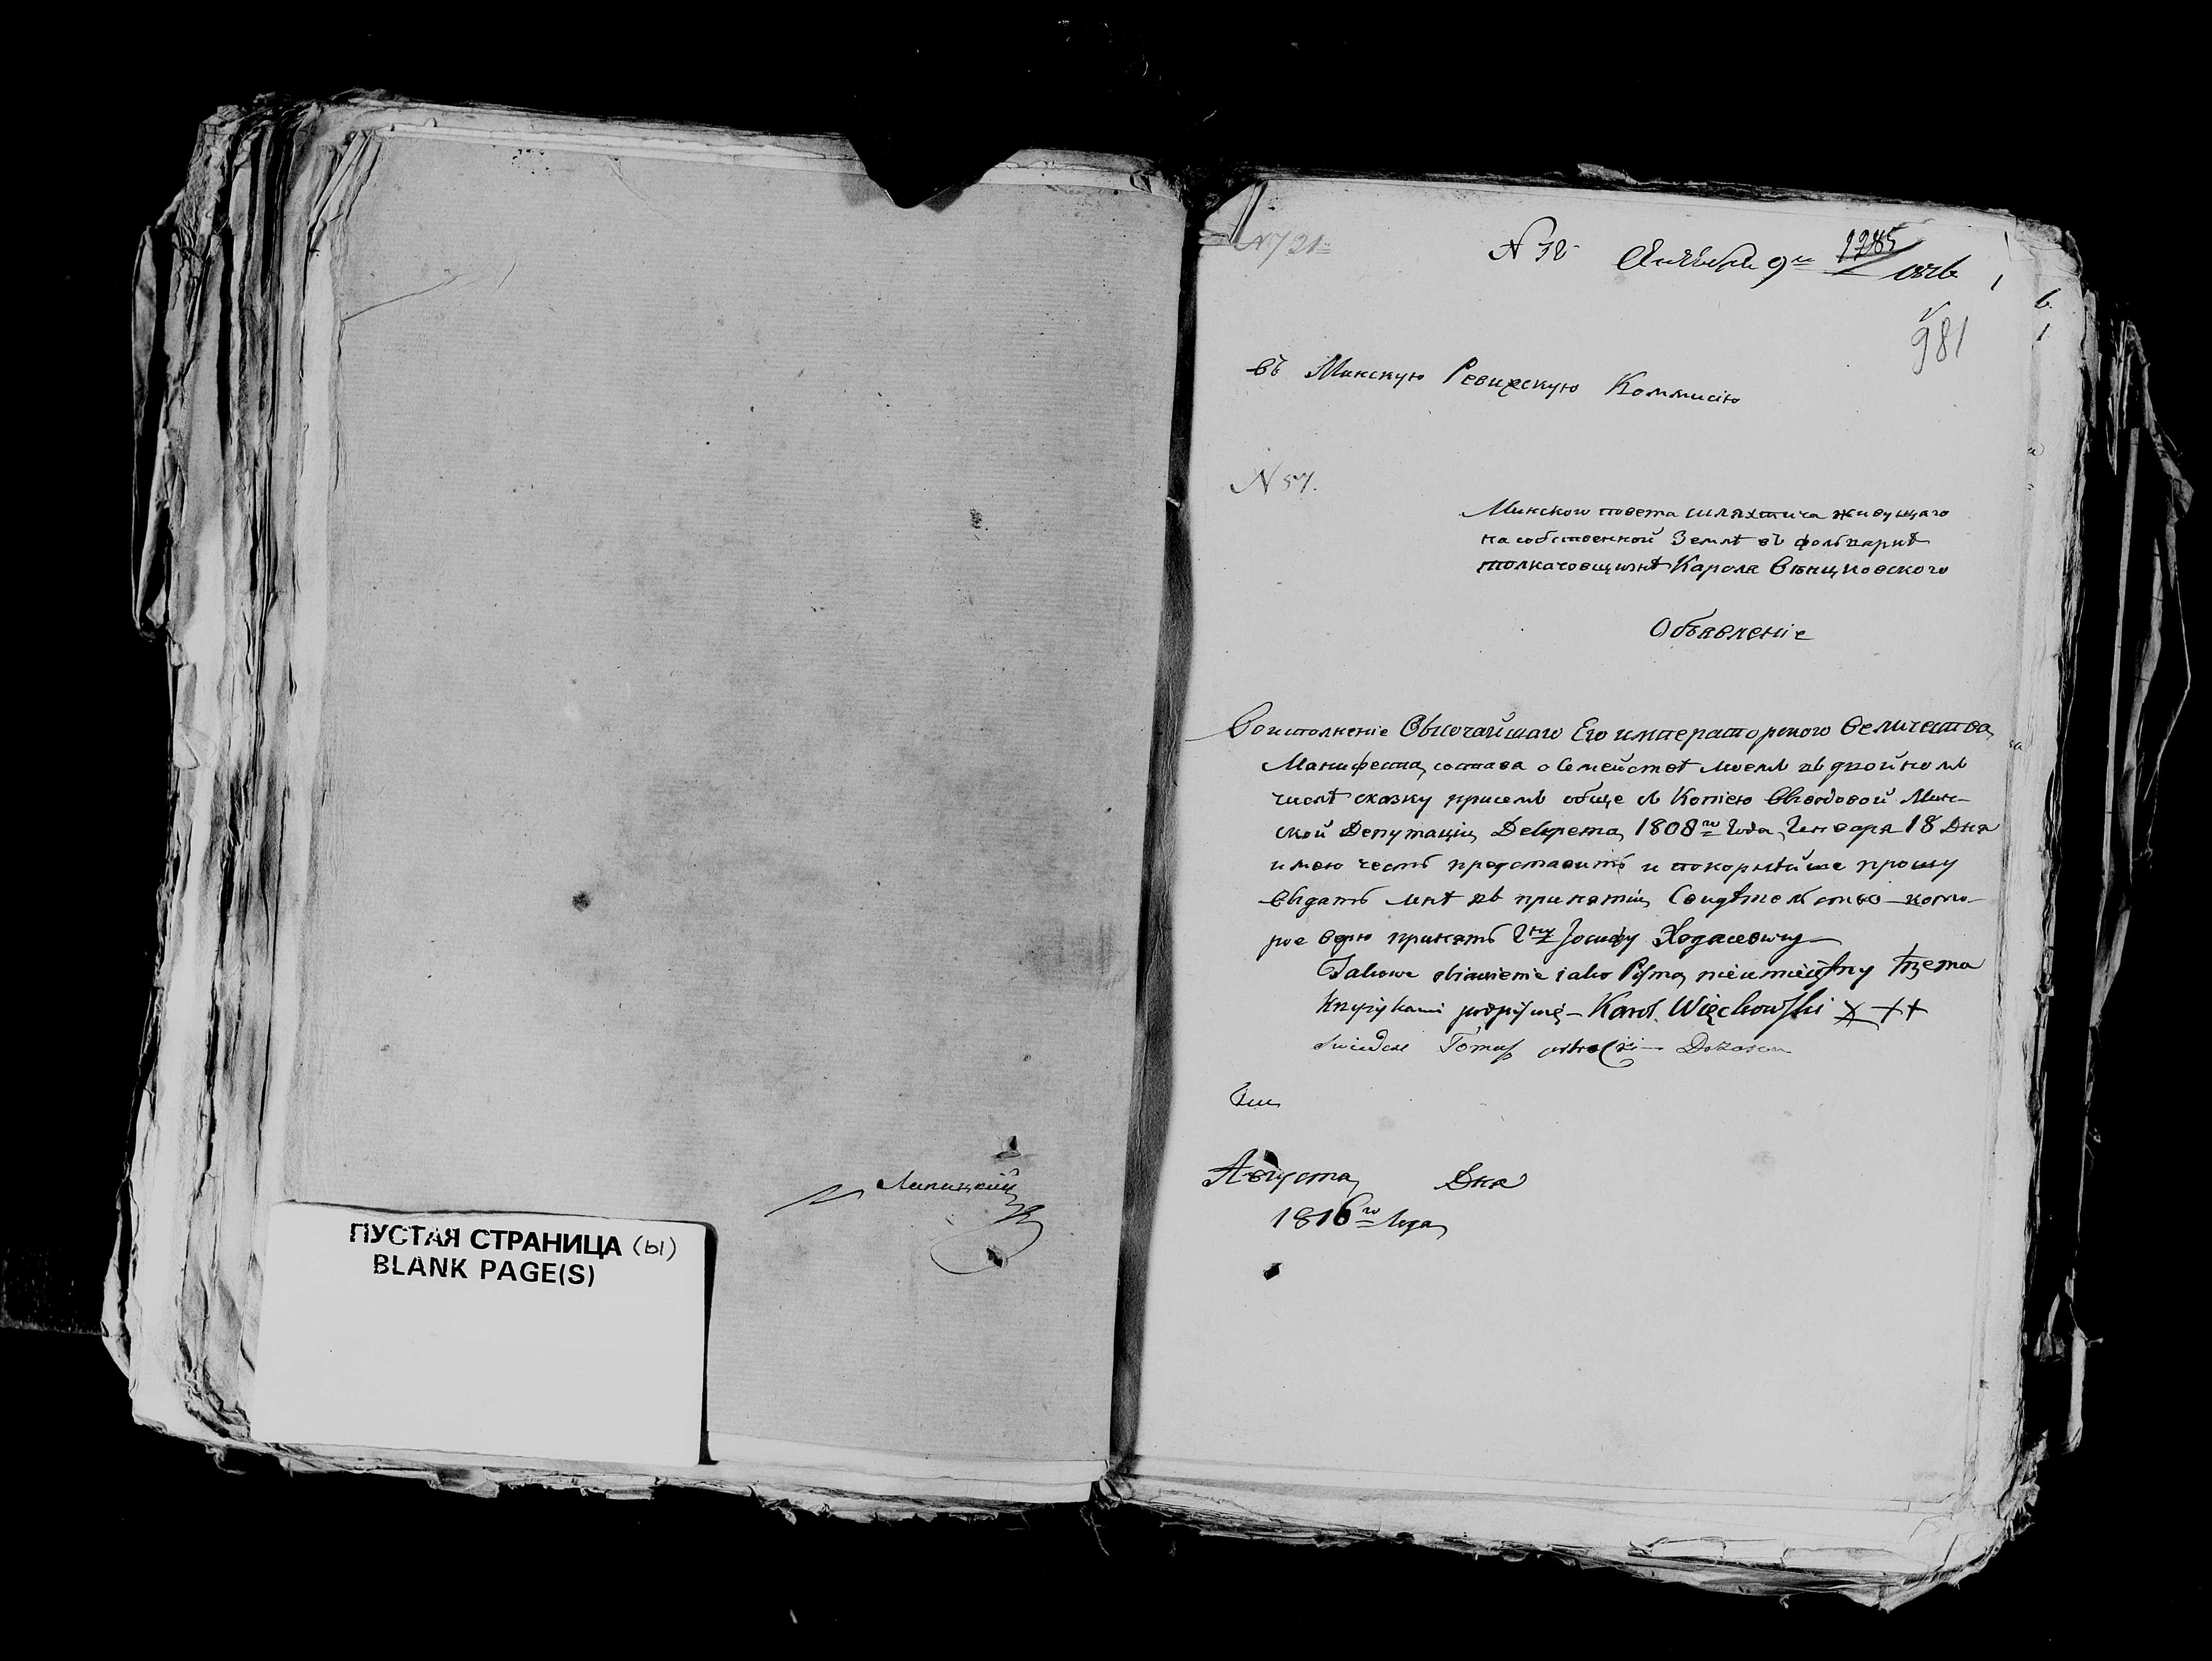 Липицкий
ПУСТАЯ СТРАНИЦА (ы)
BLANK PAGE(S)
№ 721
№ 32 9го 1285 1816
981
въ Минскую Ревизскую Коммисію
N 57.
Минского повета шляхтича живущаго
на собственной Землѣ въ фольваркѣ
толкачовщизнѣ Карола Вѣнцковского
Объявленіе
Воисполненіе Высочайшаго Его императорского Величества
Манифеста, состава о Семействѣ моемъ въ двойномъ
числѣ сказку присемъ обще съ Копіею Выводовой Мин-
ской Депутаціи Декрета 1808го Года Генваря 18 Дня
имею честь представить и покорнѣйше прошу
выдать мнѣ въ принятіи Свидѣтельство кото-
рое верю принять Гну Іосифу Ходасевичу
Takowe obiawienie iako Pisma nieumieiętny trzema
krzyżykami podpisuię – Karol Więckowski X ++
Tomasz
Августа Дня
1816го Года